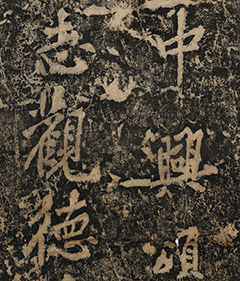 中興頌
志觀德